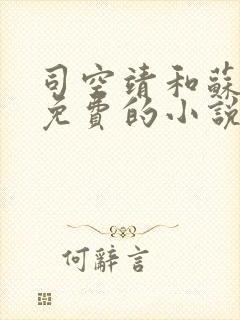 司空靖和蘇
免費的小說
何辭言